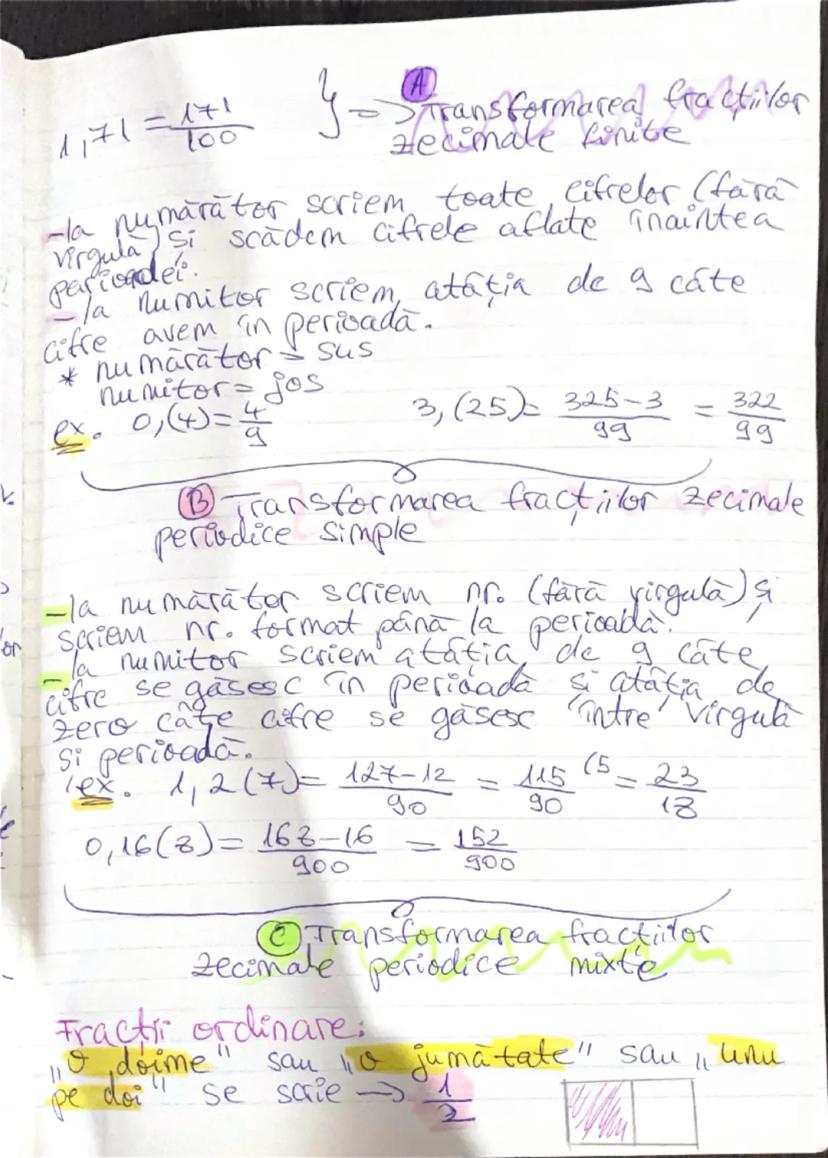 A
1,71 = 171/100 } => Transformarea fracțiilor
zecimale finite
-la numărător scriem toate cifrelor (fără
virgulă) și scădem cifrele aflate înaintea
perioadei.
-la numitor scriem atâția de 9 câte
cifre avem în perioadă.
* numărător = sus
numitor = jos
ex. 0,(4) = 4/9 3,(25) = 325-3/99 = 322/99
B Transformarea fracțiilor zecimale
periodice simple
-la numărător scriem nr. (fără virgulă) și
scriem nr. format până la perioadă.
-la numitor scriem atâția de 9 câte
cifre se găsesc în perioadă și atâția de
zero câte cifre se găsesc între virgulă
și perioadă.
ex. 1,2(7) = 127-12/90 = 115/90 (5 = 23/18
0,16(8) = 168-16/900 = 152/900
C Transformarea fracțiilor
zecimale periodice mixte
Fracții ordinare:
„O doime" sau „o jumătate" sau „unu
pe doi" se scrie -> 1/2